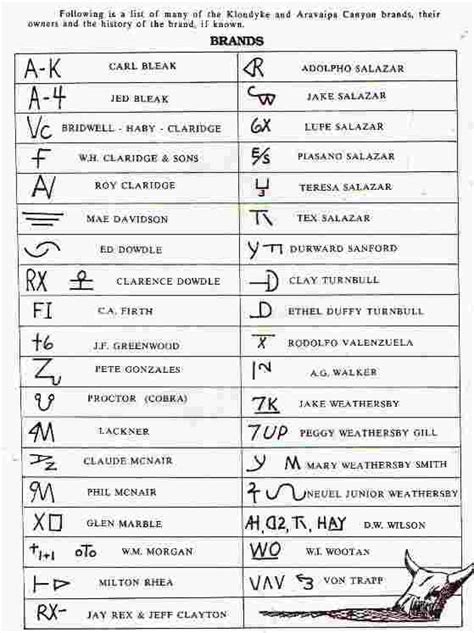 Following is a list of many of the Klondyke and Aravaipa Canyon brands, their
owners and the history of the brand, if known.
BRANDS
A-K CARL BLEAK
A-4 JED BLEAK
VC BRIDWELL - HABY - CLARIDGE
F W.H. CLARIDGE & SONS
A/ ROY CLARIDGE
MAE DAVIDSON
ED DOWDLE
RX CLARENCE DOWDLE
FI C.A. FIRTH
+6 J.F. GREENWOOD
PETE GONZALES
PROCTOR (COBRA)
LACKNER
CLAUDE MCNAIR
9M PHIL MCNAIR
X□ GLEN MARBLE
+1+1 oTo W.M. MORGAN
MILTON RHEA
RX- JAY REX & JEFF CLAYTON
ADOLPHO SALAZAR
CW JAKE SALAZAR
6X LUPE SALAZAR
E/S PIASANO SALAZAR
TERESA SALAZAR
TEX SALAZAR
DURWARD SANFORD
-D CLAY TURNBULL
ETHEL DUFFY TURNBULL
X RODOLFO VALENZUELA
A.G. WALKER
7K JAKE WEATHERSBY
7UP PEGGY WEATHERSBY GILL
y M MARY WEATHERSBY SMITH
NEUEL JUNIOR WEATHERSBY
D.W. WILSON
WO W.I. WOOTAN
VON TRAPP